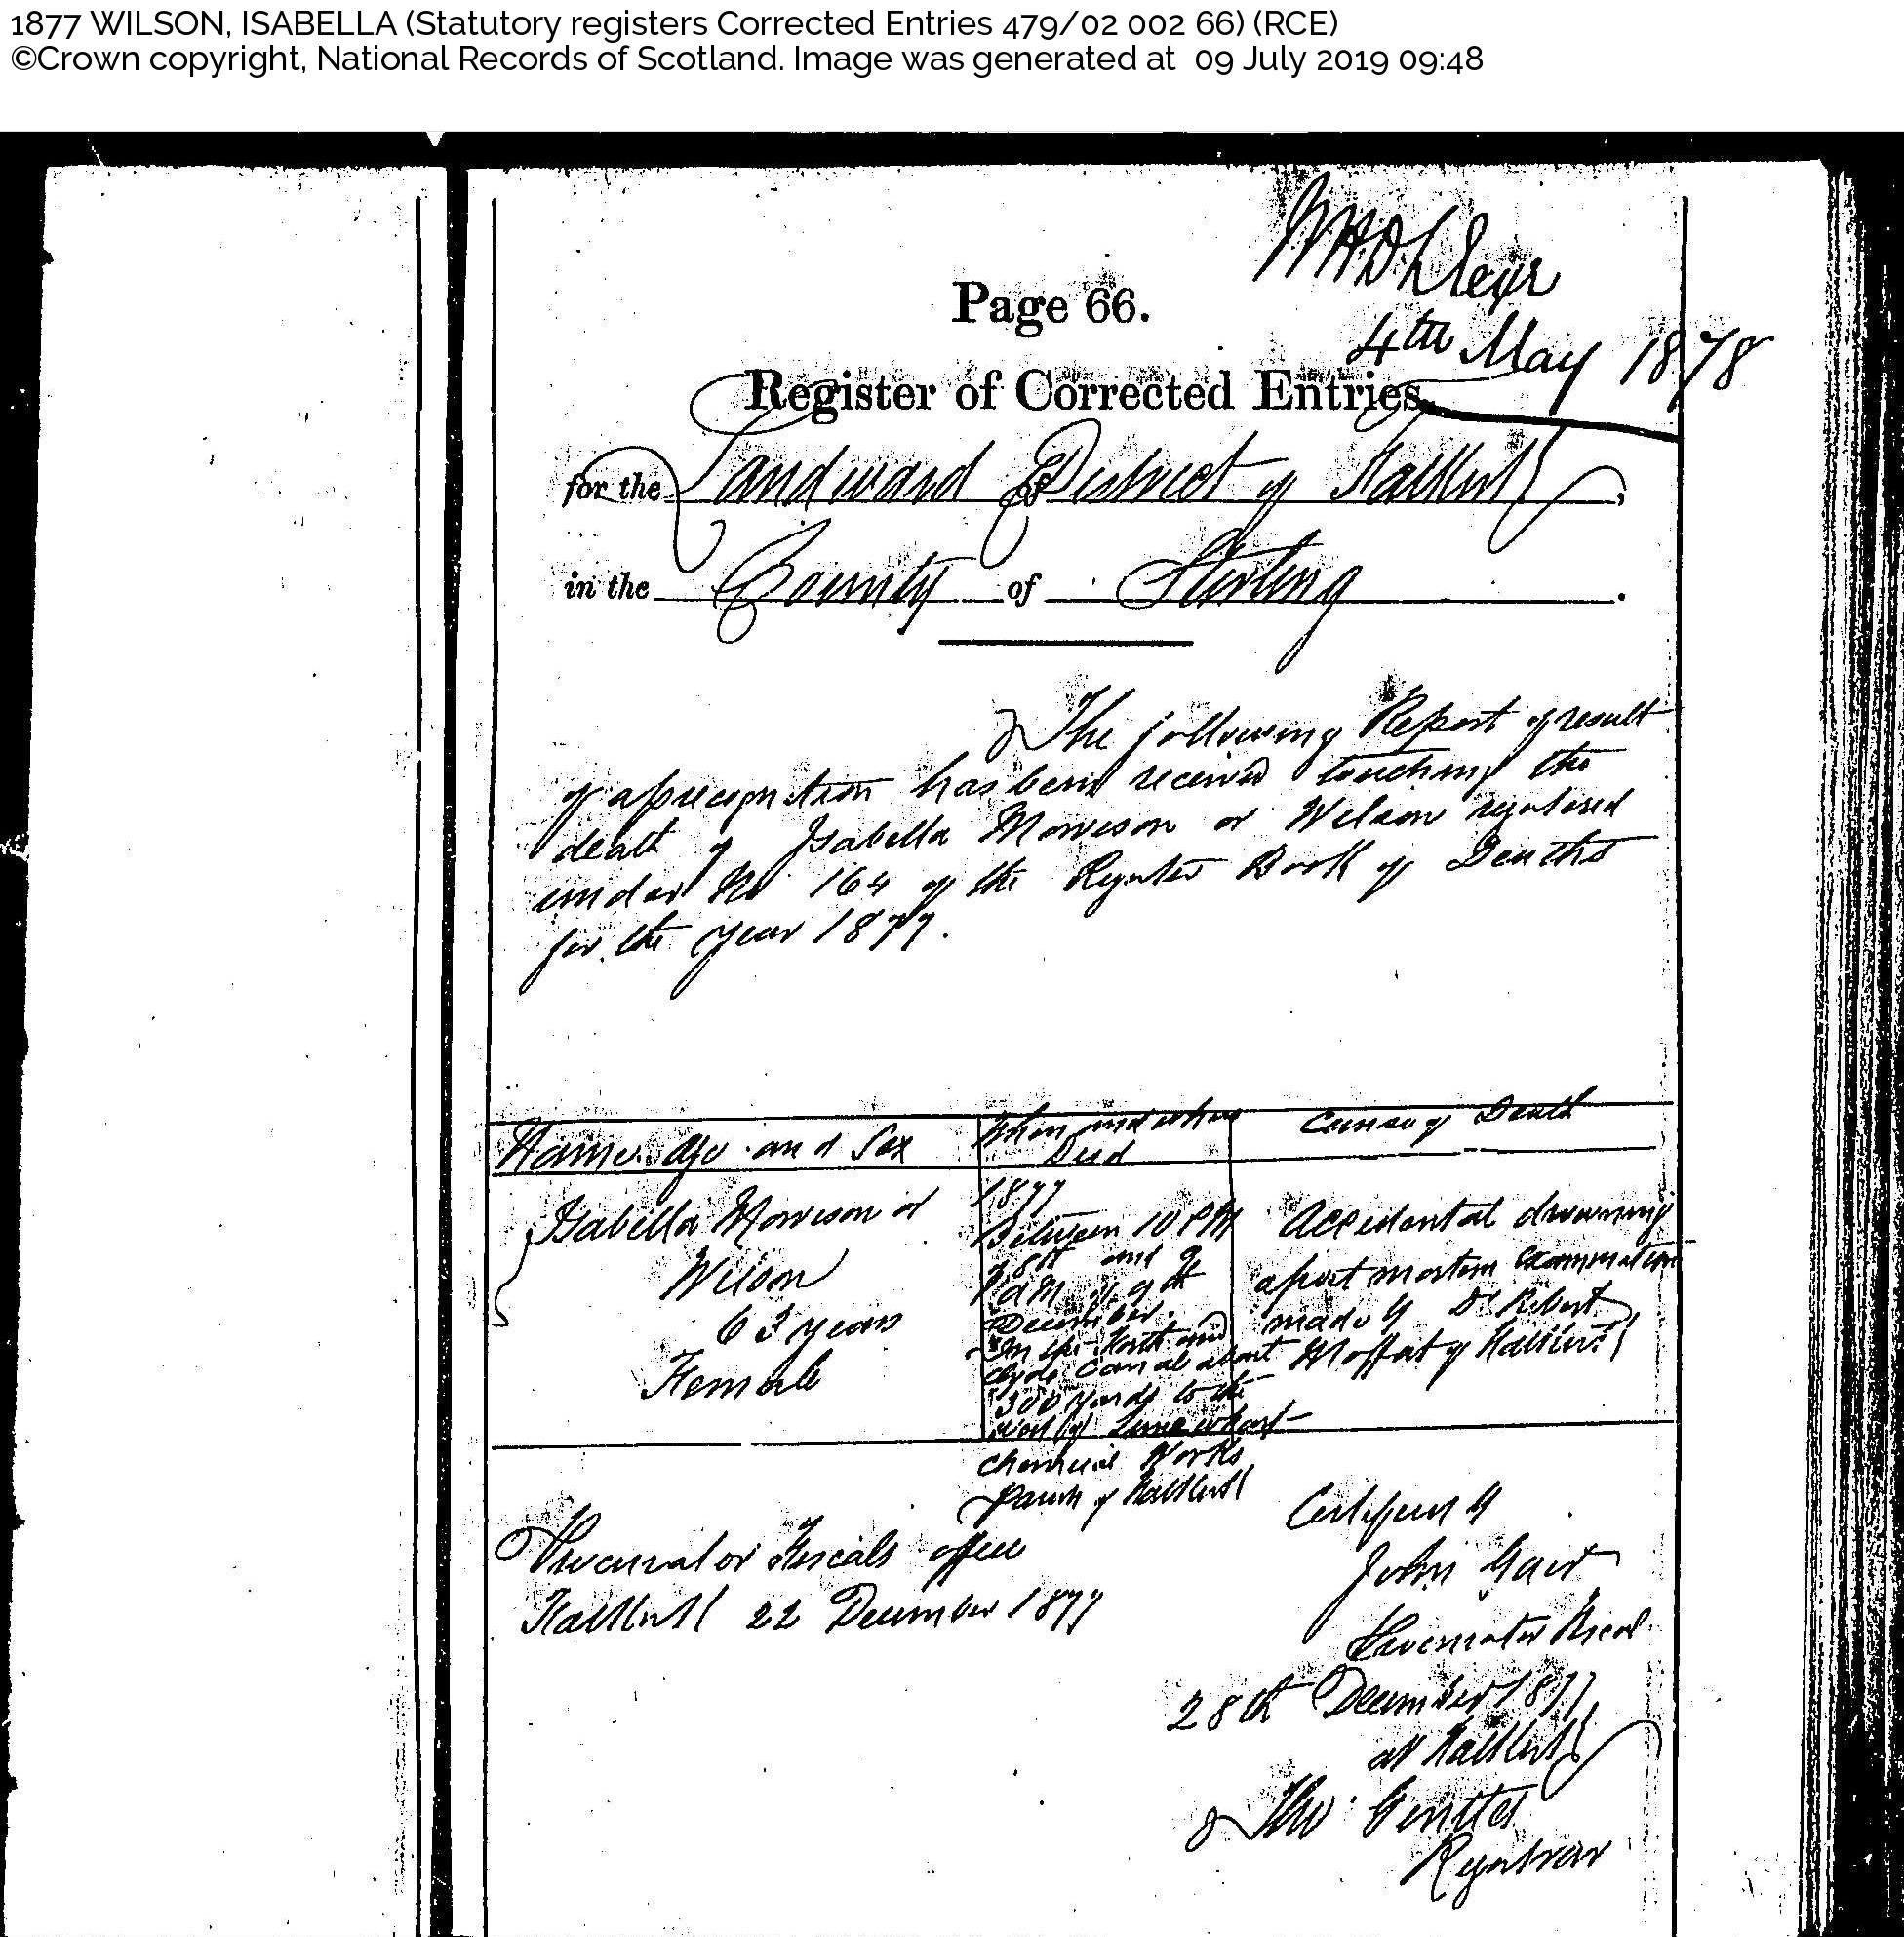 1877 WILSON, ISABELLA (Statutory registers Corrected Entries 479/02 002 66) (RCE)
©Crown copyright, National Records of Scotland. Image was generated at 09 July 2019 09:48
Page 66.
4th May 1878
Register of Corrected Entries
for the Landward District of Falkirk,
in the County of Stirling.
The following Report of result
of a precognition has been received touching the
death of Isabella Morrison or Wilson registered
under No 164 of the Register Book of Deaths
for the year 1877.
Name. Age and Sex
When and where Died
Cause of Death
Isabella Morrison or
Wilson
63 years
Female
1877
Between 10 PM
of 8th and
1 AM of 9th
December
In the Forth and
Clyde Canal about
300 yards to the
west of Limewharf
Chemical Works
Parish of Falkirk
Accidental drowning
a post mortem examination
made by Dr Robert
Moffat of Falkirk
Procurator Fiscals office
Falkirk 22 December 1877
Certified by
John Gair
Procurator Fiscal
28th December 1877
at Falkirk
Registrar